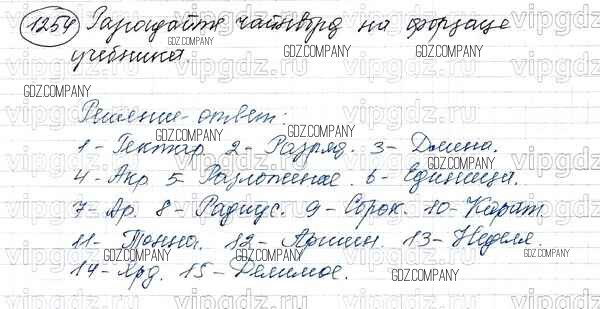 1254 Разгадайте чайнворд на форзаце
учебника.
Решение-ответ:
1- Гектар. 2- Разряд. 3- Длина.
4- Акр 5- Разложение. 6- Единица.
7- Ар. 8- Радиус. 9- Сорок. 10- Карат.
11- Тонна. 12- Аршин. 13- Неделя.
14- Ярд. 15- Делимое.
GDZ.COMPANY
vipgdz.ru